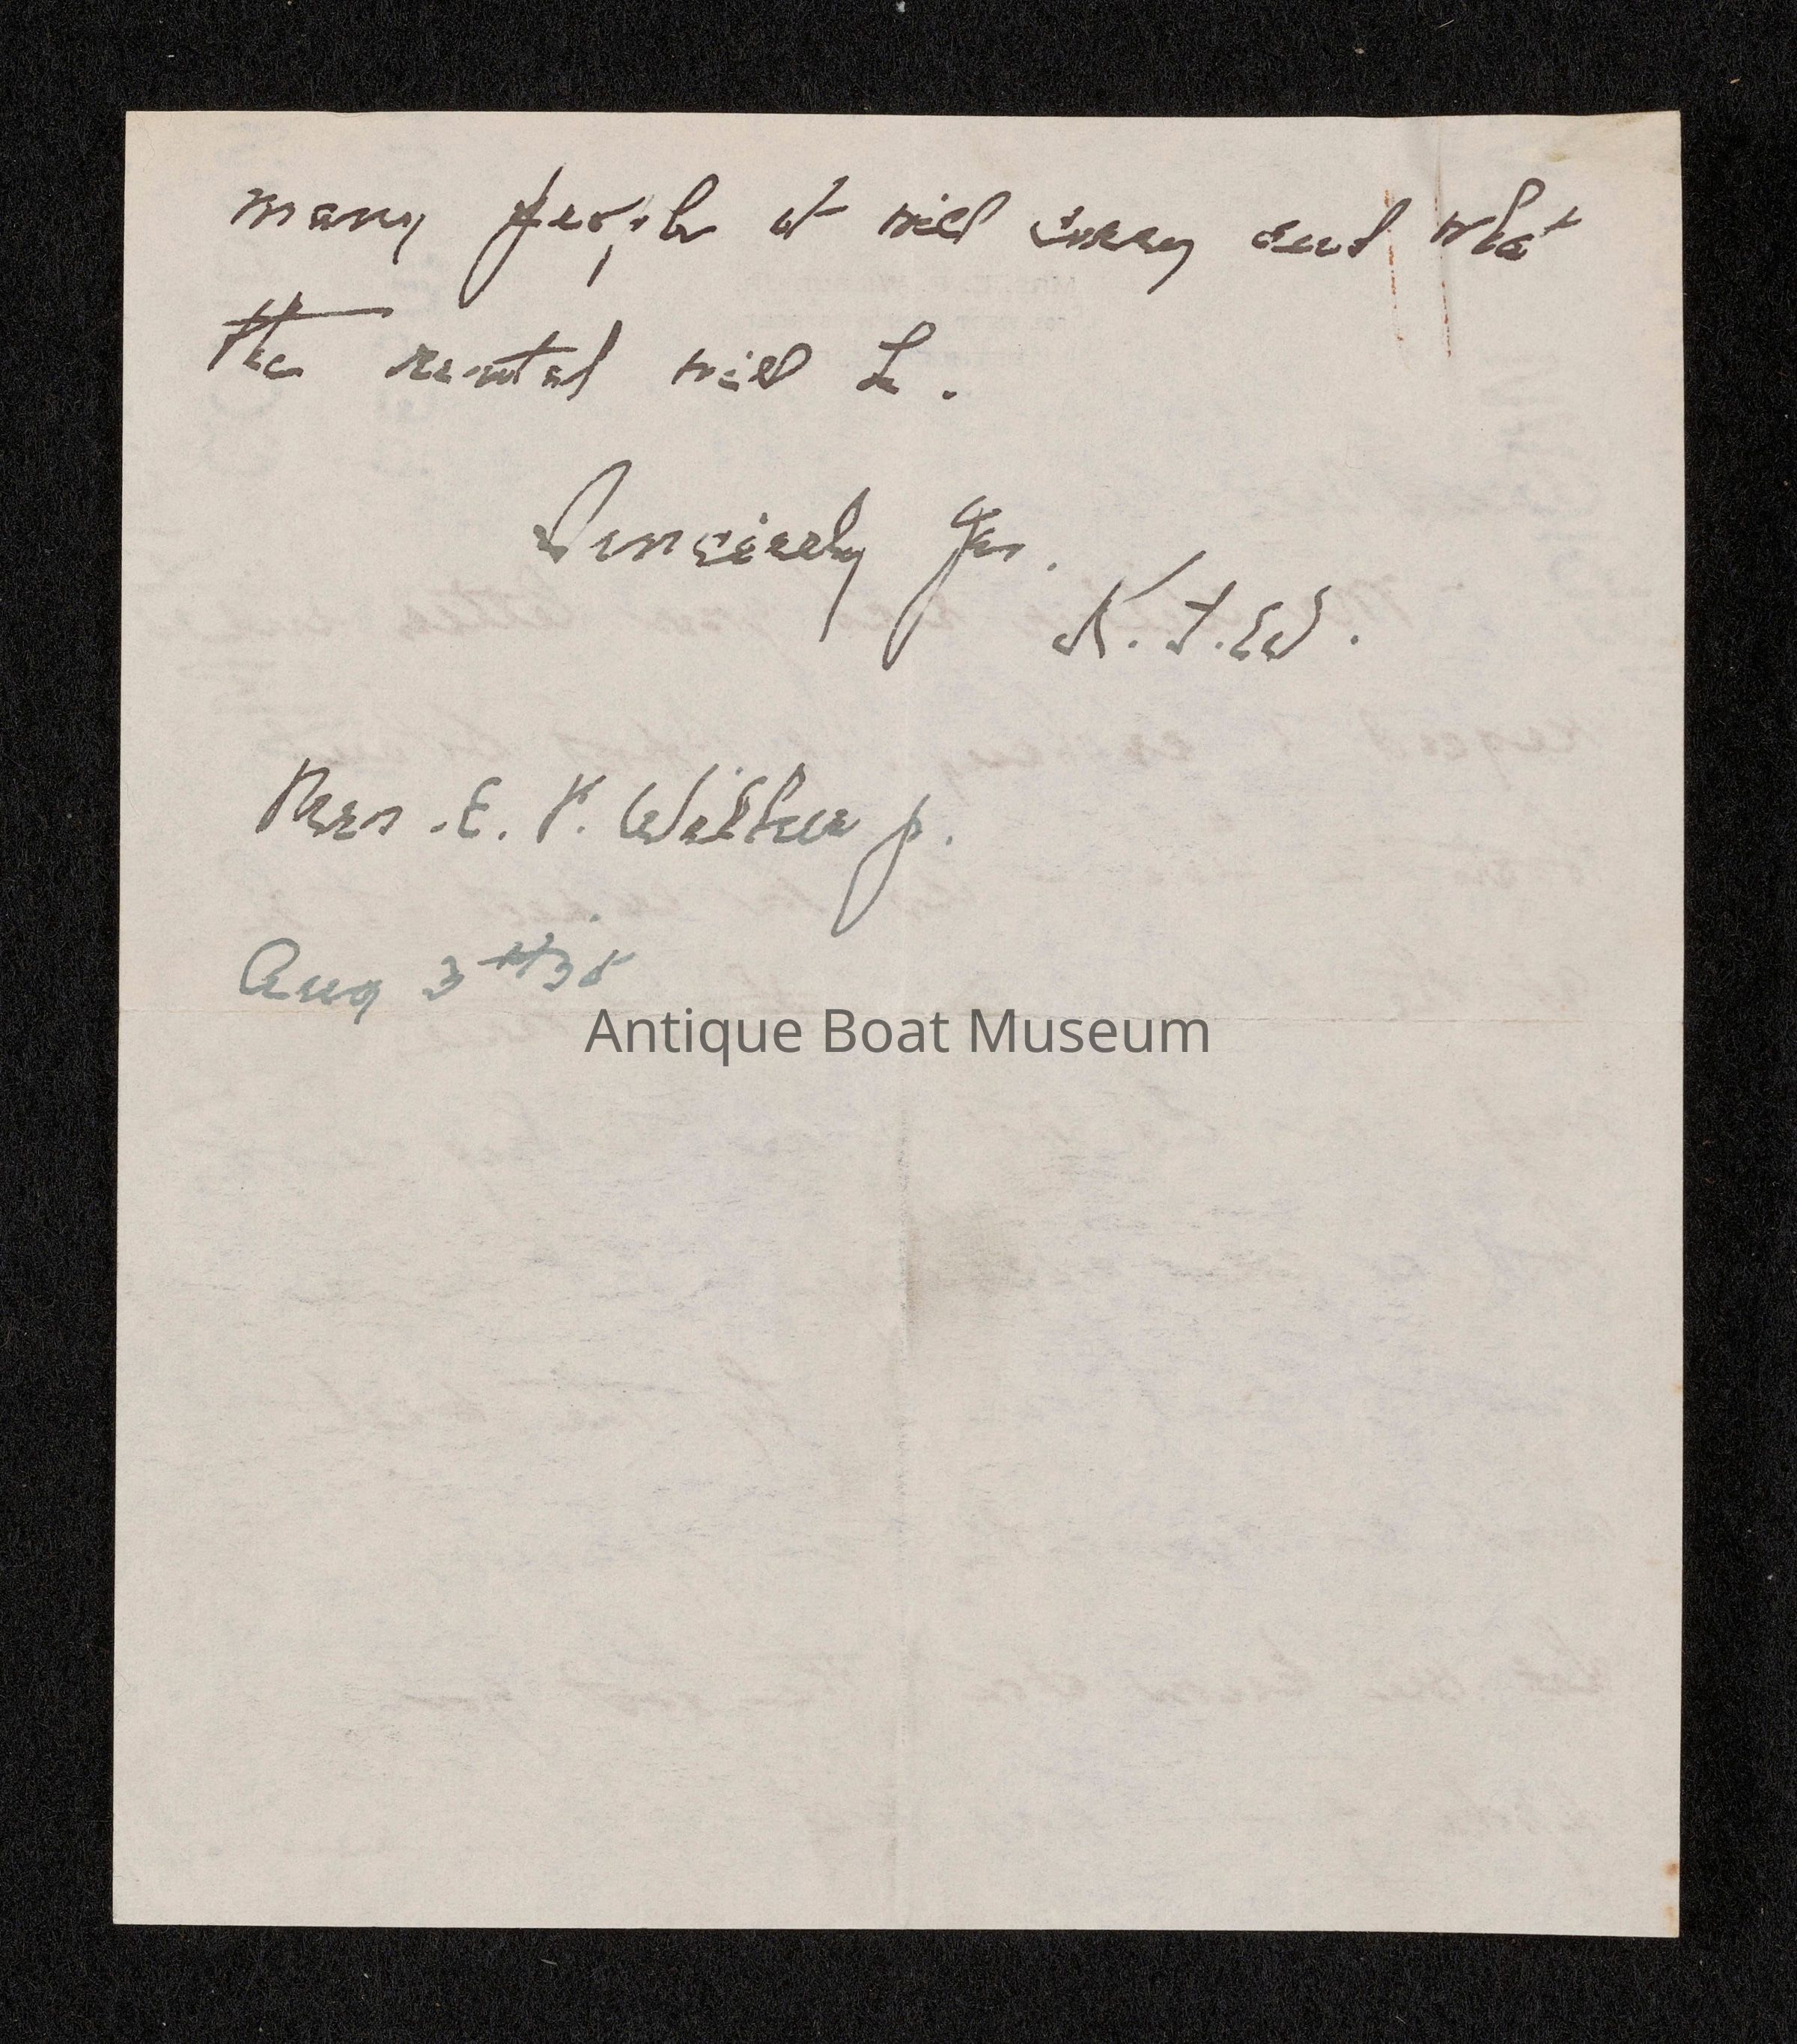 many people it will carry and what
the rental will be.
Sincerely yrs.
K. T. W.
Mrs. E. P. Wilbur Jr.
Aug 3rd 35
Antique Boat Museum